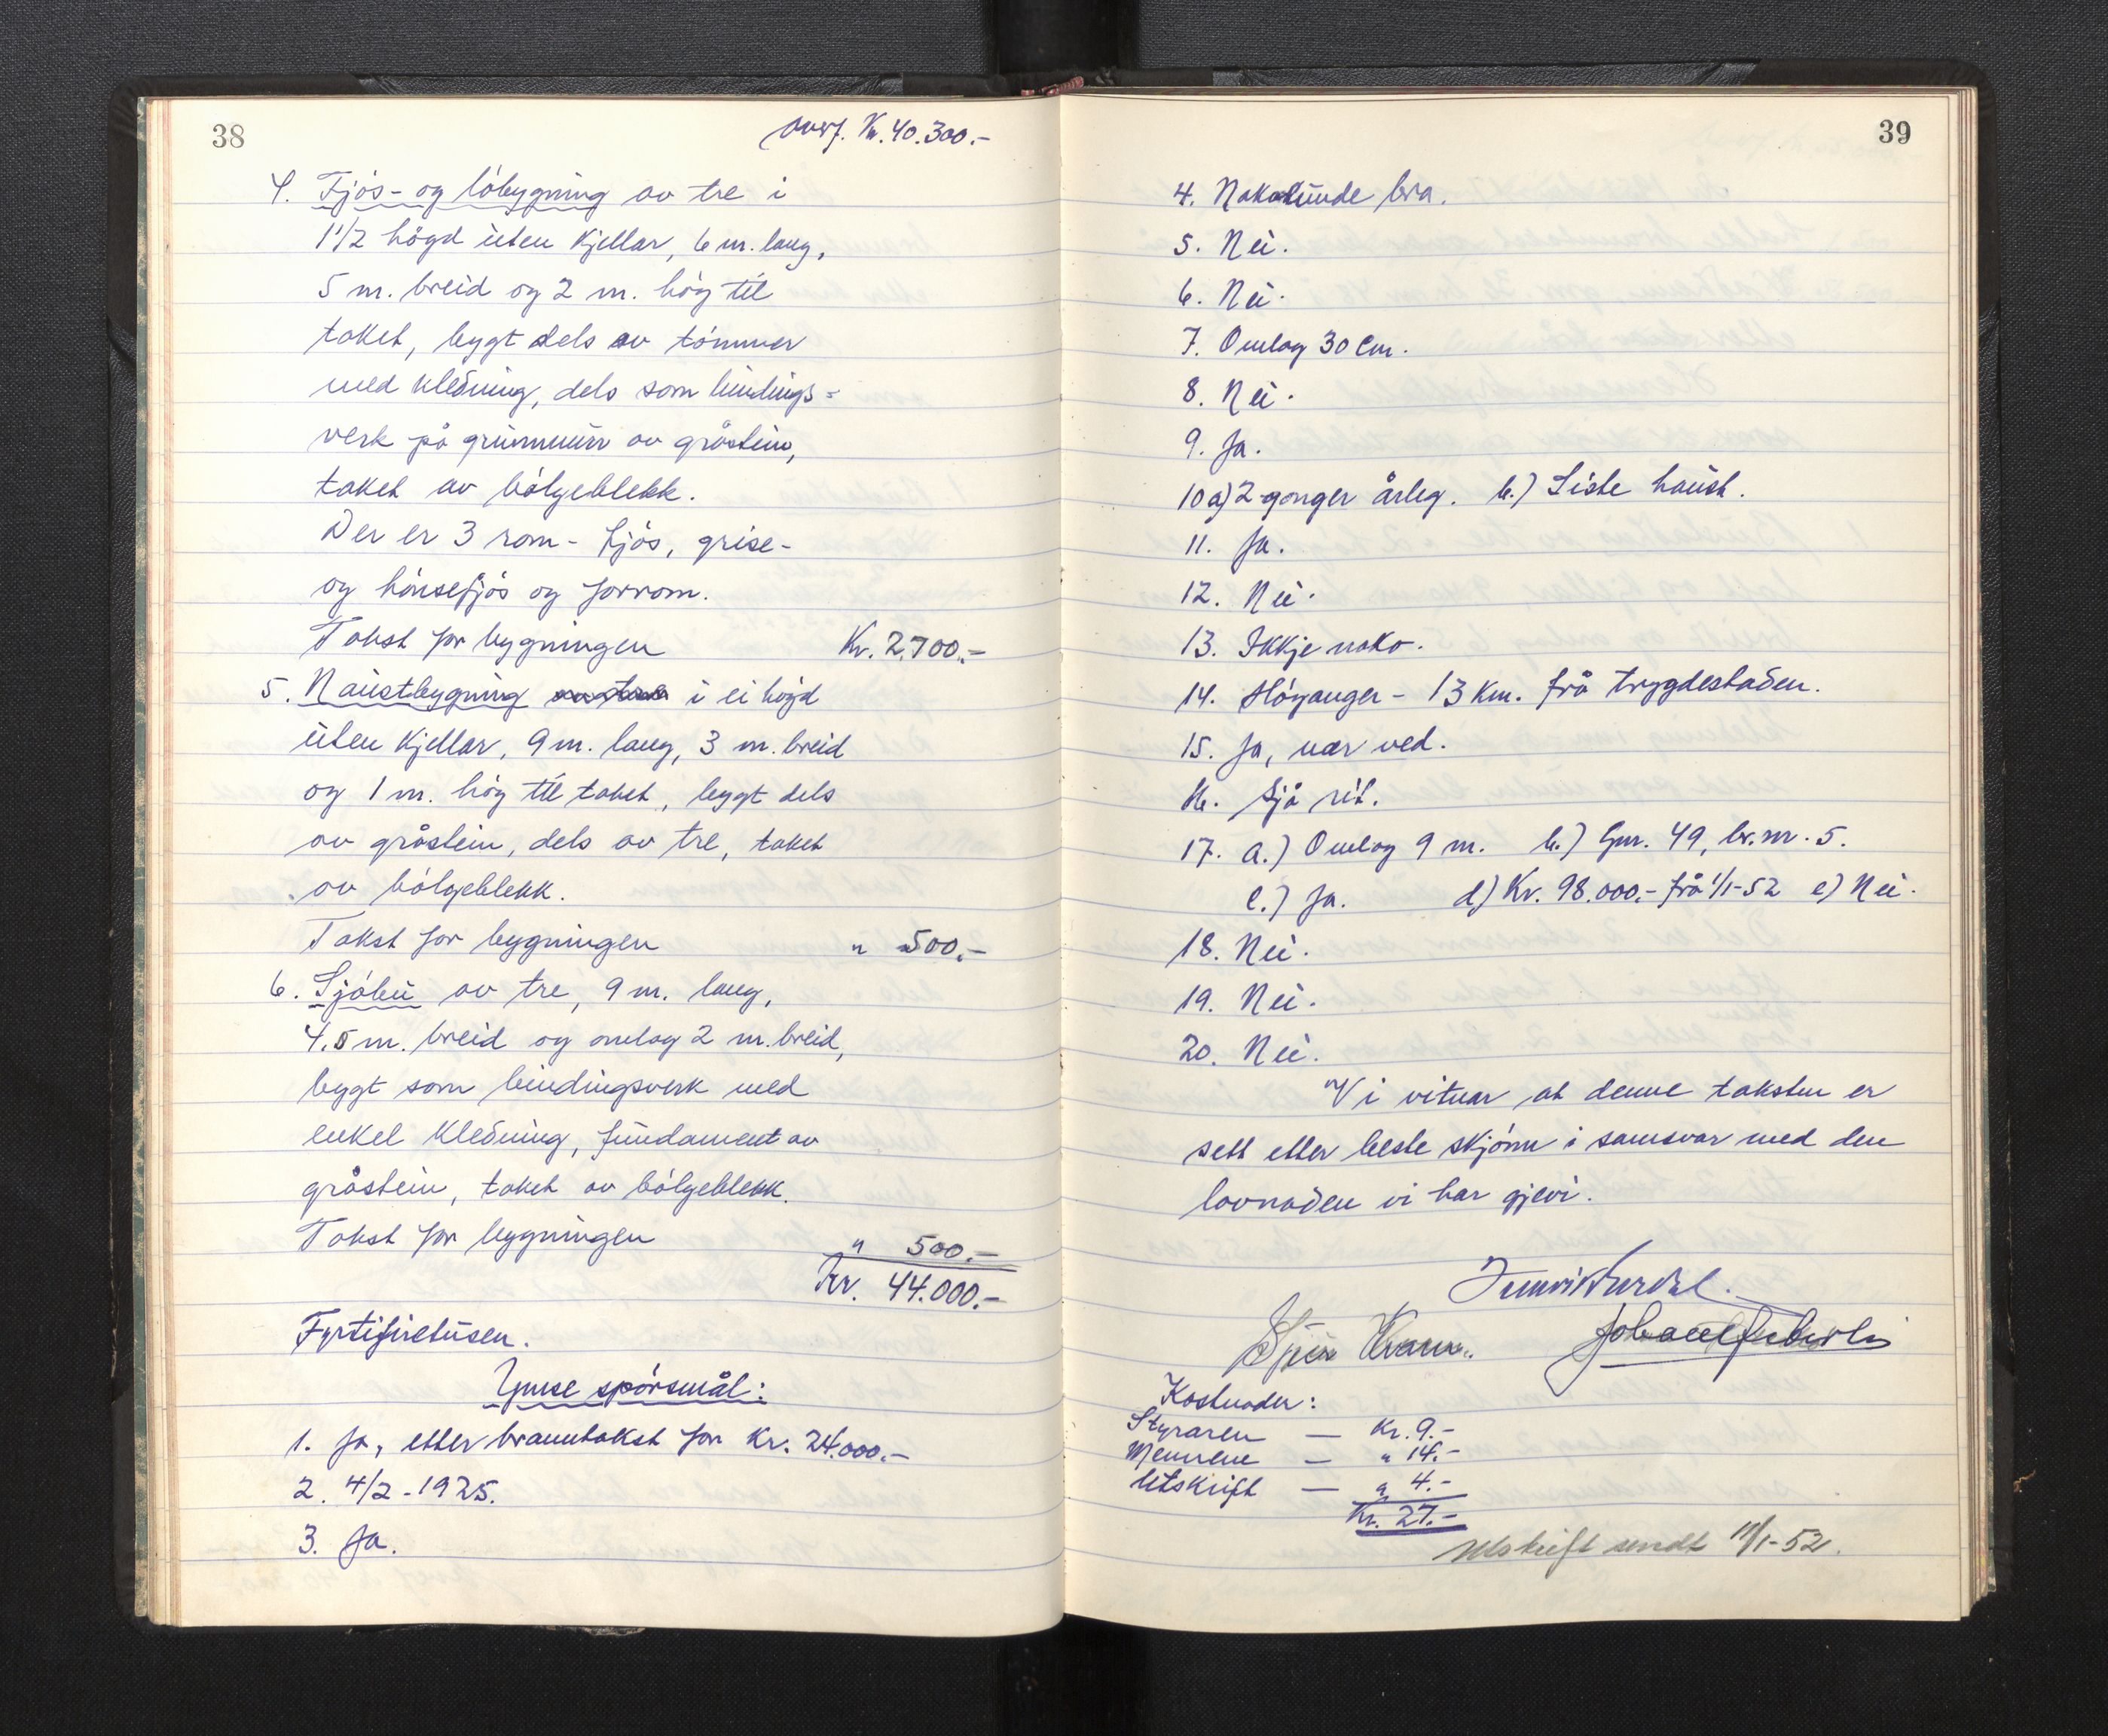 38
Overf. Kr. 40.300.-
4. Fjös- og löbygning av tre i
1 1/2 högd uten kjellar, 6 m. lang,
5 m. breid og 2 m. hög til
taket, bygt dels av tömmer
med kledning, dels som bindings-
verk på grunnmur av gråstein,
taket av bölgeblekk.
Der er 3 rom - fjös, grise-
og hönsefjös og forrom.
Takst for bygningen Kr. 2.700.-
5. Naustbygning i ei högd
uten kjellar, 9 m. lang, 3 m. breid
og 1 m. hög til taket, bygt dels
av gråstein, dels av tre, taket
av bölgeblekk.
Takst for bygningen " 500.-
6. Sjöbu av tre, 9 m. lang,
4.5 m. breid og omlag 2 m. breid,
bygt som bindingsverk med
enkel kledning, fundament av
gråstein, taket av bölgeblekk.
Takst for bygningen " 500.-
Kr. 44.000.-
Fyrtifiretusen.
Ymse spörsmål:
1. Ja, etter branntakst for Kr. 24.000.-
2. 4/2 - 1925.
3. Ja.
39
4. Nokolunde bra.
5. Nei.
6. Nei.
7. Omlag 30 cm.
8. Nei.
9. Ja.
10 a) 2 gonger årleg. b.) Siste haust.
11. Ja.
12. Nei.
13. Ikkje noko.
14. Höyanger - 13 km. frå trygdestaden.
15. Ja, nær ved.
16. Sjå rit.
17. a.) Omlag 9 m. b.) Gnr. 49, br.nr. 5.
c.) Ja. d) Kr. 98.000.- frå 1/1-52 e) Nei.
18. Nei.
19. Nei.
20. Nei.
Vi vitnar at denne taksten er
sett etter beste skjönn i samsvar med den
lovnaden vi har gjevi.
Kvam.
Kostnader:
Styraren — Kr. 9.-
Mennene — " 14.-
Utskrift — " 4.-
Kr. 27.-
Utskrift sendt 11/1-52.